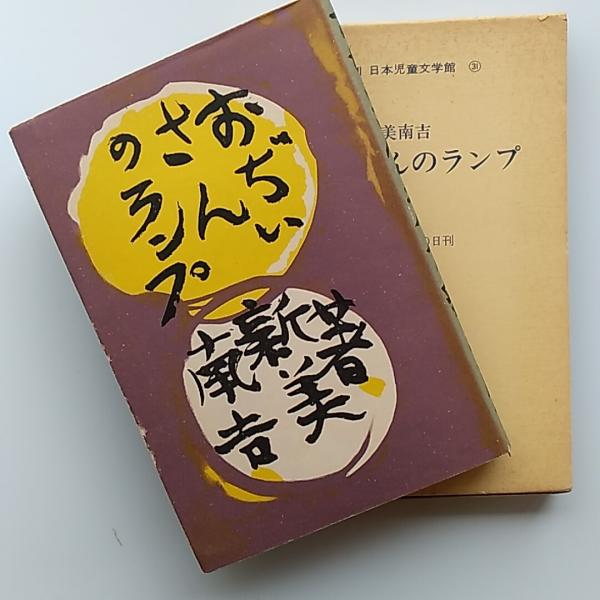 おぢい
さん
の
ランプ
新美
南吉
著
日本児童文学館 ㉛
美南吉
んのランプ
の日刊